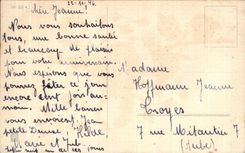 22-11-46
Chère Jeanne!
Nous vous souhaitons
tous, une bonne santé
et beaucoup de plaisir
pour votre anniversaire.
Nous espérons que vous
pourrez fêter ce jour
encore
Mille baisers
vous envoient, Jean
Denise,
Marie et
Madame
Hoffmann Jeanne
Troyes
7 rue Mitantier 7
(Aube)